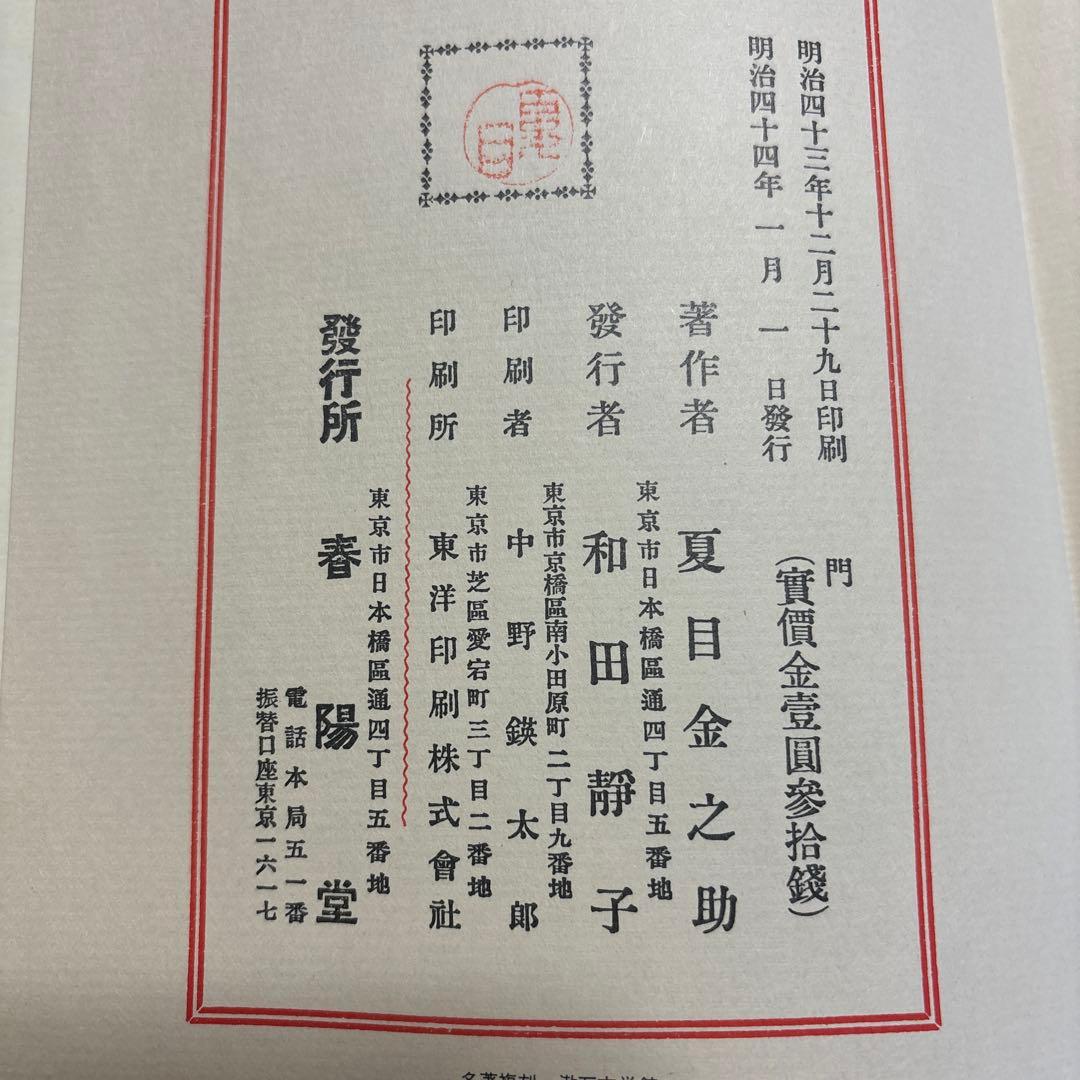 明治四十三年十二月二十九日印刷
明治四十四年一月一日發行
門
(實價金壹圓參拾錢)
著作者 夏目金之助
東京市日本橋區通四丁目五番地
發行者 和田靜子
東京市京橋區南小田原町二丁目九番地
印刷者 中野鍈太郎
東京市芝區愛宕町三丁目二番地
印刷所 東洋印刷株式會社
東京市日本橋區通四丁目五番地
發行所 春陽堂
電話本局五一番
振替口座東京一六一七
夏目